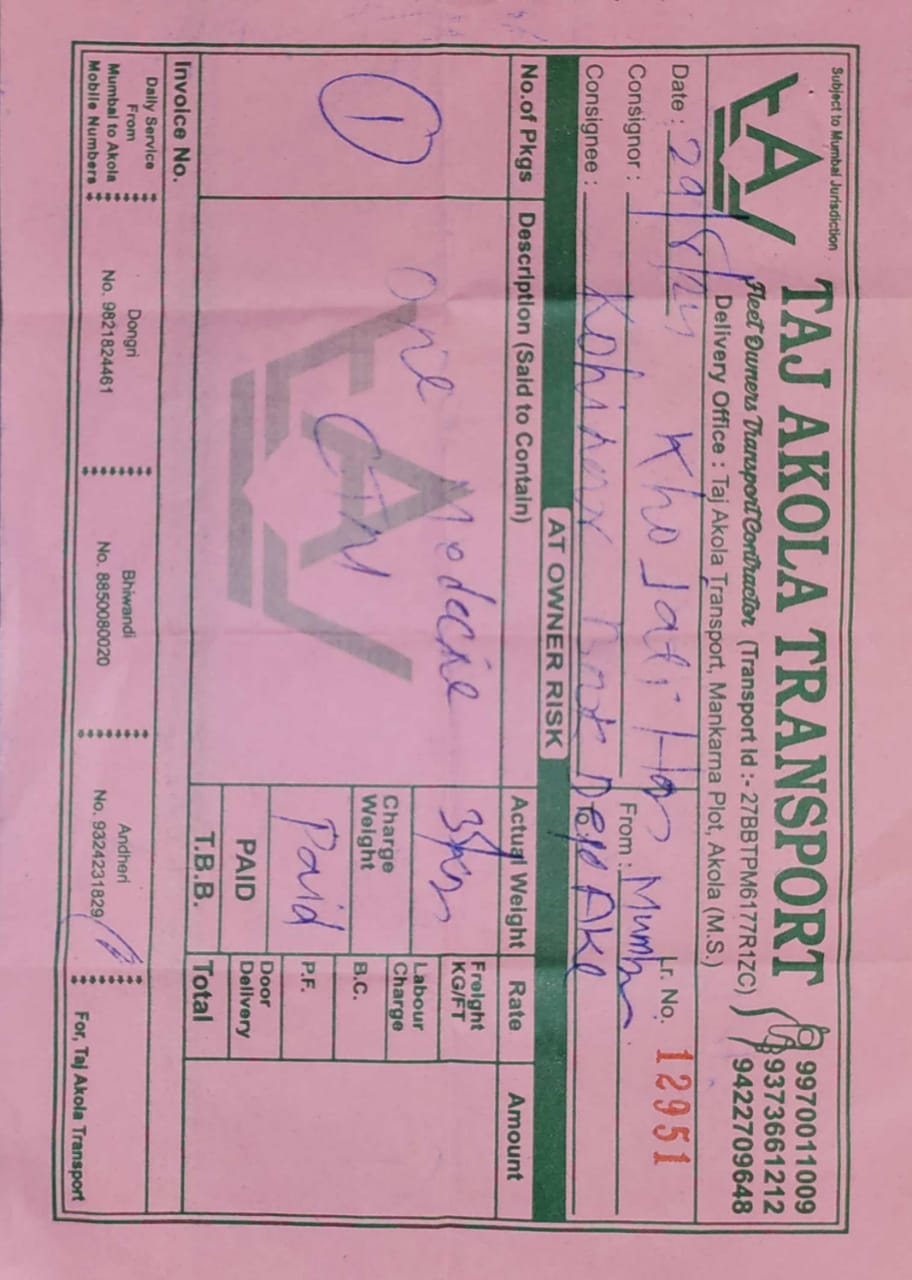 Subject to Mumbai Jurisdiction
TAJ AKOLA TRANSPORT
9970011009
9373661212
9422709648
Fleet Owners Transport Contractor (Transport Id :- 27BBTPM6177R1ZC)
Delivery Office : Taj Akola Transport, Mankarna Plot, Akola (M.S.)
Date :
Lr. No. 12951
Consignor :
From : Mumb
Consignee : Kohinoor
AT OWNER RISK
No.of Pkgs Description (Said to Contain) Actual Weight Rate Amount
1
One
CTN
Freight KG/FT
Labour Charge
Charge Weight
B.C.
Paid
P.F.
PAID
Door Delivery
T.B.B.
Total
Invoice No.
Daily Service From Mumbai to Akola Mobile Numbers
Dongri
No. 9821824461
Bhiwandi
No. 8850080020
Andheri
No. 9324231829
For, Taj Akola Transport